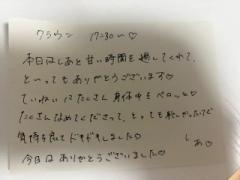 クラウン 17:30〜♡
本日はしあと甘い時間を過してくれて、
とってもありがとうございます♡
ていねいにたくさん身体中をペロッと♡
たくさんなめてくださって、とっても
気持ち良くてドキドキしました♡
今日はありがとうございました♡
しあ♡